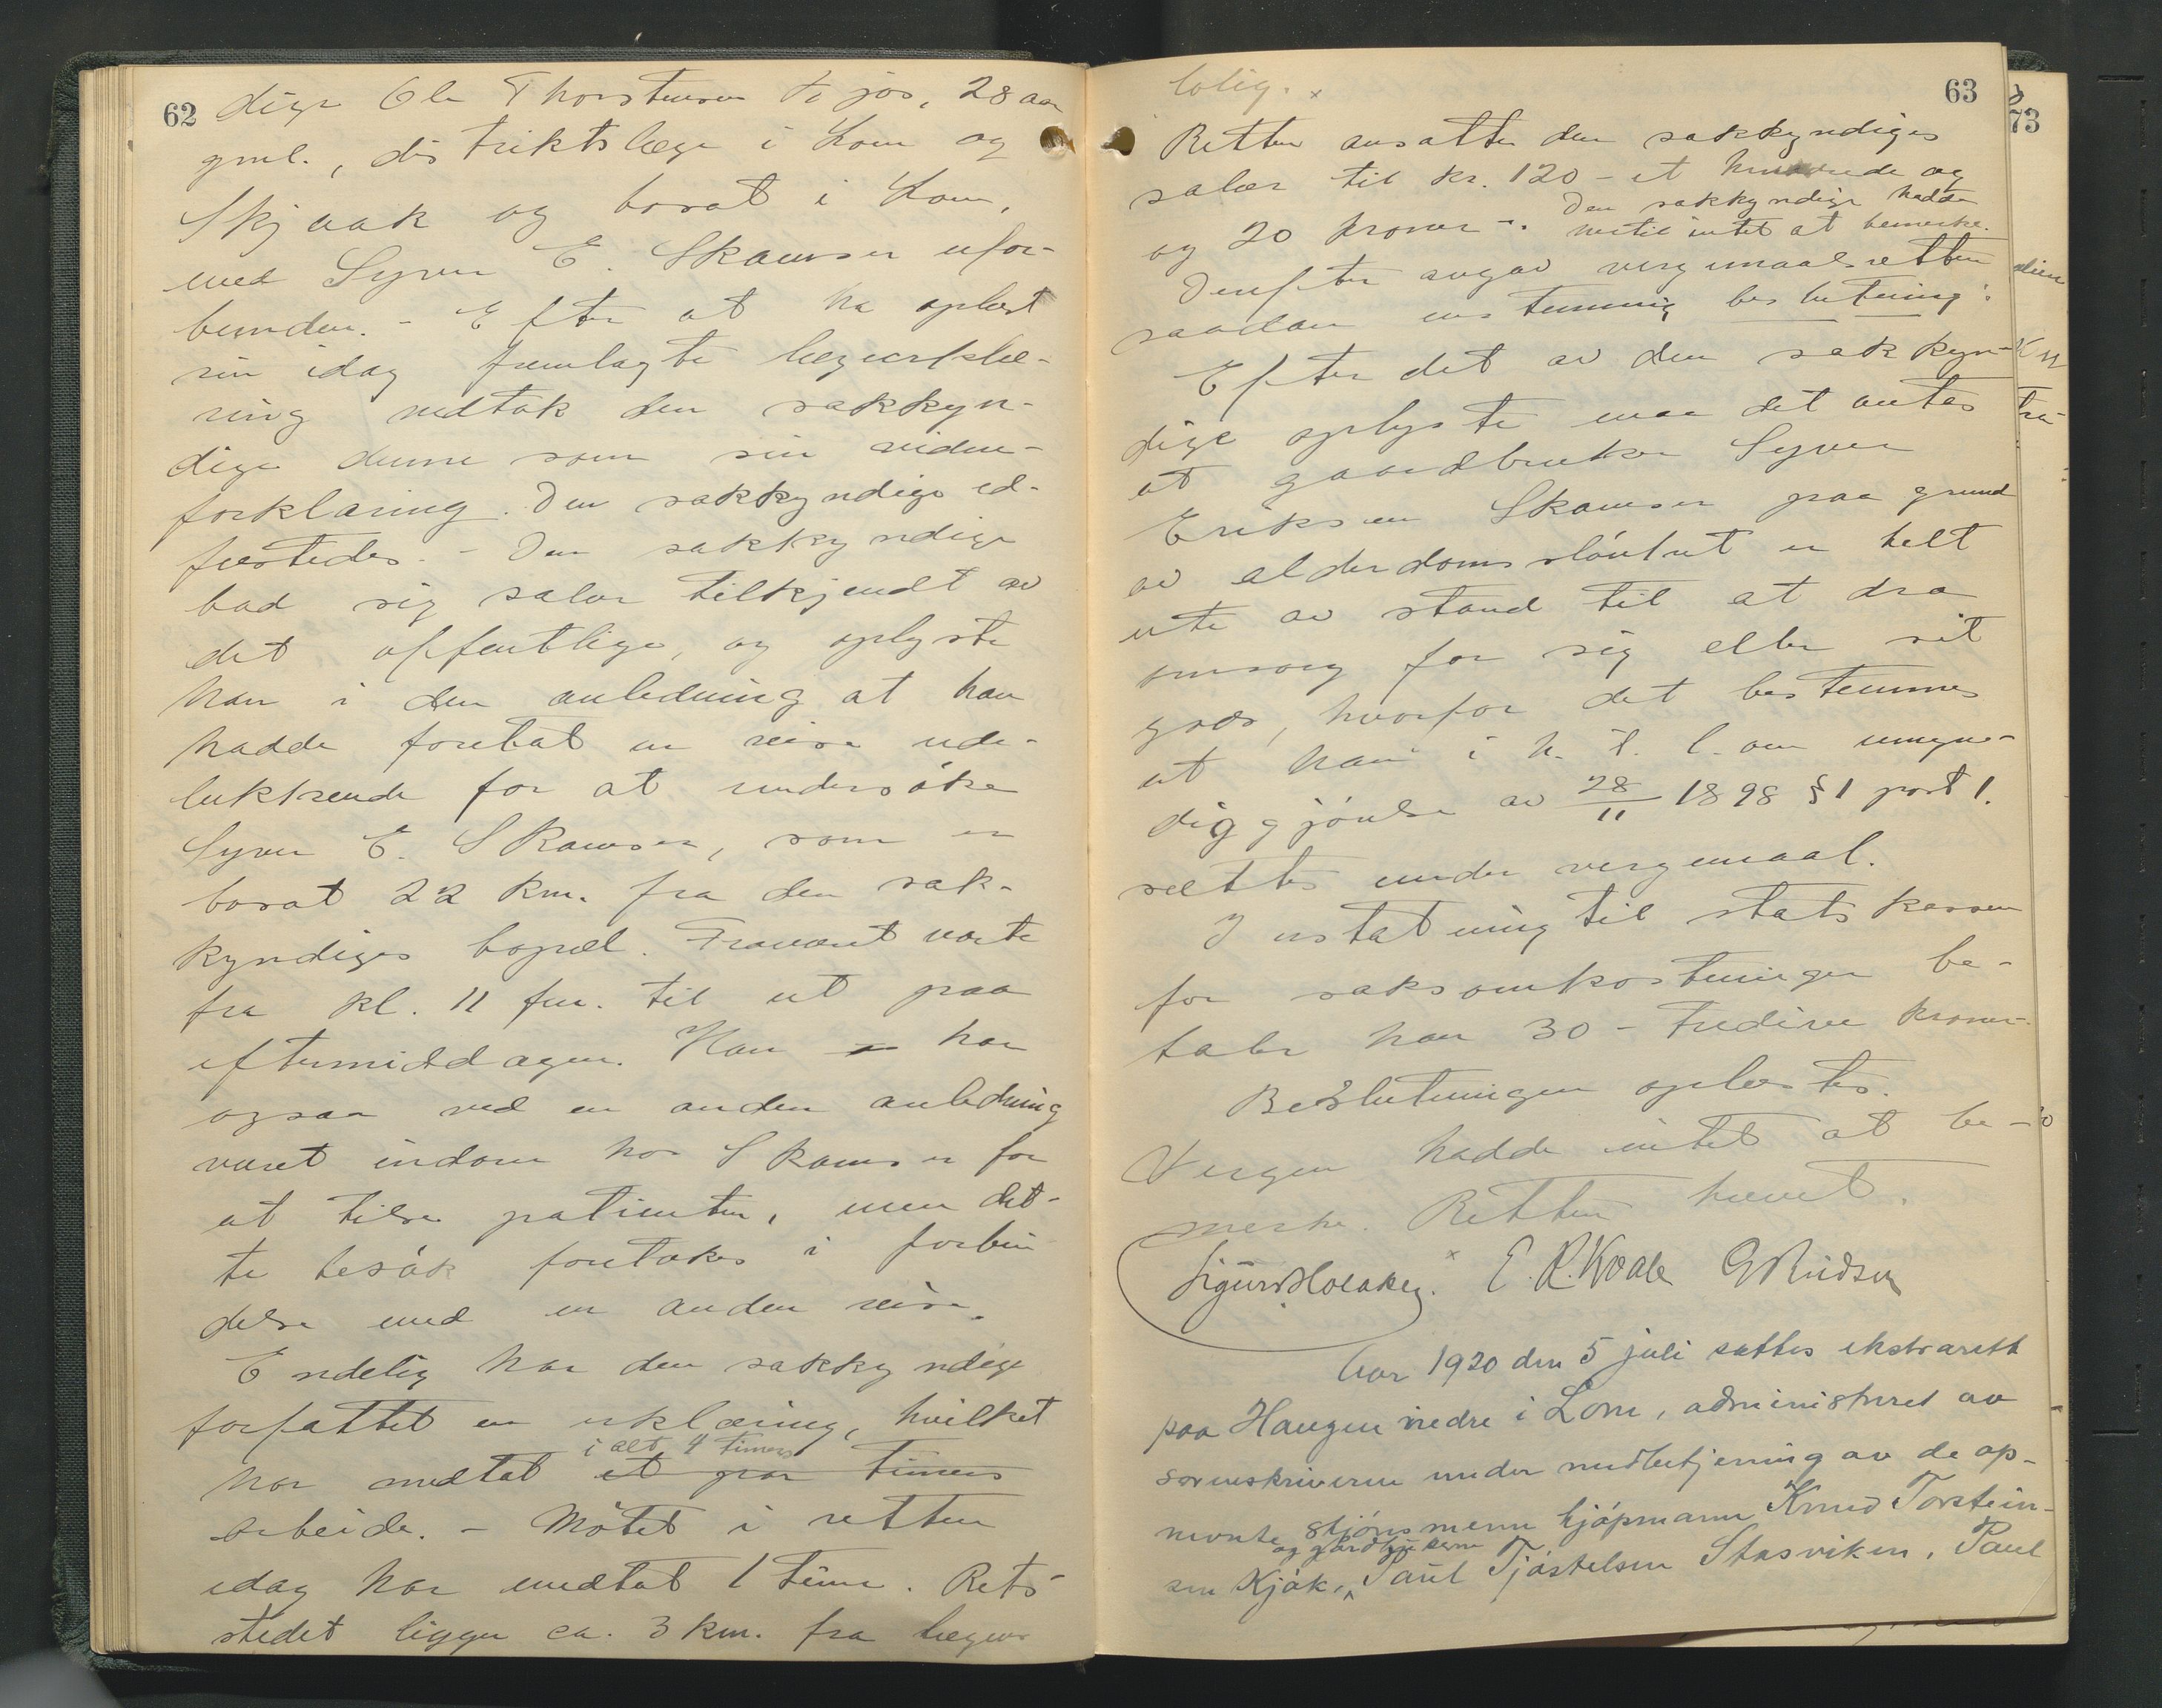 62
dige Ole Thorstensen Tøjøs, 28 aar
gml., distriktslæge i Lom og
Skjaak og bosat i Lom,
med Syver E. Skamsar ufor-
bunden. - Efter at ha oplæst
sin idag fremlagte lægeerklæ-
ring vedtok den sakkyn-
dige denne som sin vidne-
forklaring. Den sakkyndige ed-
fæstedes. - Den sakkyndige
bad sig salær tilkjendt av
det offentlige, og oplyste
han i den anledning at han
hadde foretat en reise ude-
lukkende for at undersøke
Syver E. Skamsar, som er
bosat 22 km. fra den sak-
kyndiges bopæl. Fraværet varte
fra kl. 11 fm. til ut paa
eftermiddagen. Han har
ogsaa ved en anden anledning
været indom hos Skamsar for
at tilse patienten, men det-
te besøk foretokes i forbin
delse med en anden reise.
Endelig har den sakkyndige
forfattet en erklæring, hvilket
i alt 4 timers
har medtat et par timers
arbeide. - Møtet i retten
idag har medtat 1 time. Rets-
stedet ligger ca. 3 km. fra lægens
63
bolig. x
Retten ansatte den sakkyndiges
salær til kr. 120 - et hundrede og
og 20 kroner -. Den sakkyndige hadde
hertil intet at bemerke.
Derefter avgav vergemaalsretten
saadan enstemmig beslutning:
Efter det av den sakkyn-
dige oplyste maa det antas
at gaardbruker Syver
Eriksen Skamsar paa grund
av alderdomssløvhet er helt
ute av stand til at dra
omsorg for sig eller sit
gods, hvorfor det bestemmes
at han i h. t. l. om umyn-
diggjørelse av 28/11 1898 § 1 post 1.
sættes under vergemaal.
I erstatning til statskassen
for saksomkostninger be-
taler han 30 - tredive kroner -
Beslutningen oplæstes.
Vergen hadde intet at be-
merke. Retten hævet.
Sigurd Hoelaker. x E. R. Kvale G Rudsen
Aar 1920 den 5 juli sattes ekstrarett
paa Haugen nedre i Lom, administreret av
sorenskriveren under medbetjening av de op-
nevnte skjønsmenn kjøpmann Knud Torstein-
og gardbrukerne
sen Kjøk, Paul Tjøstelsen Stasviken, Paul
73